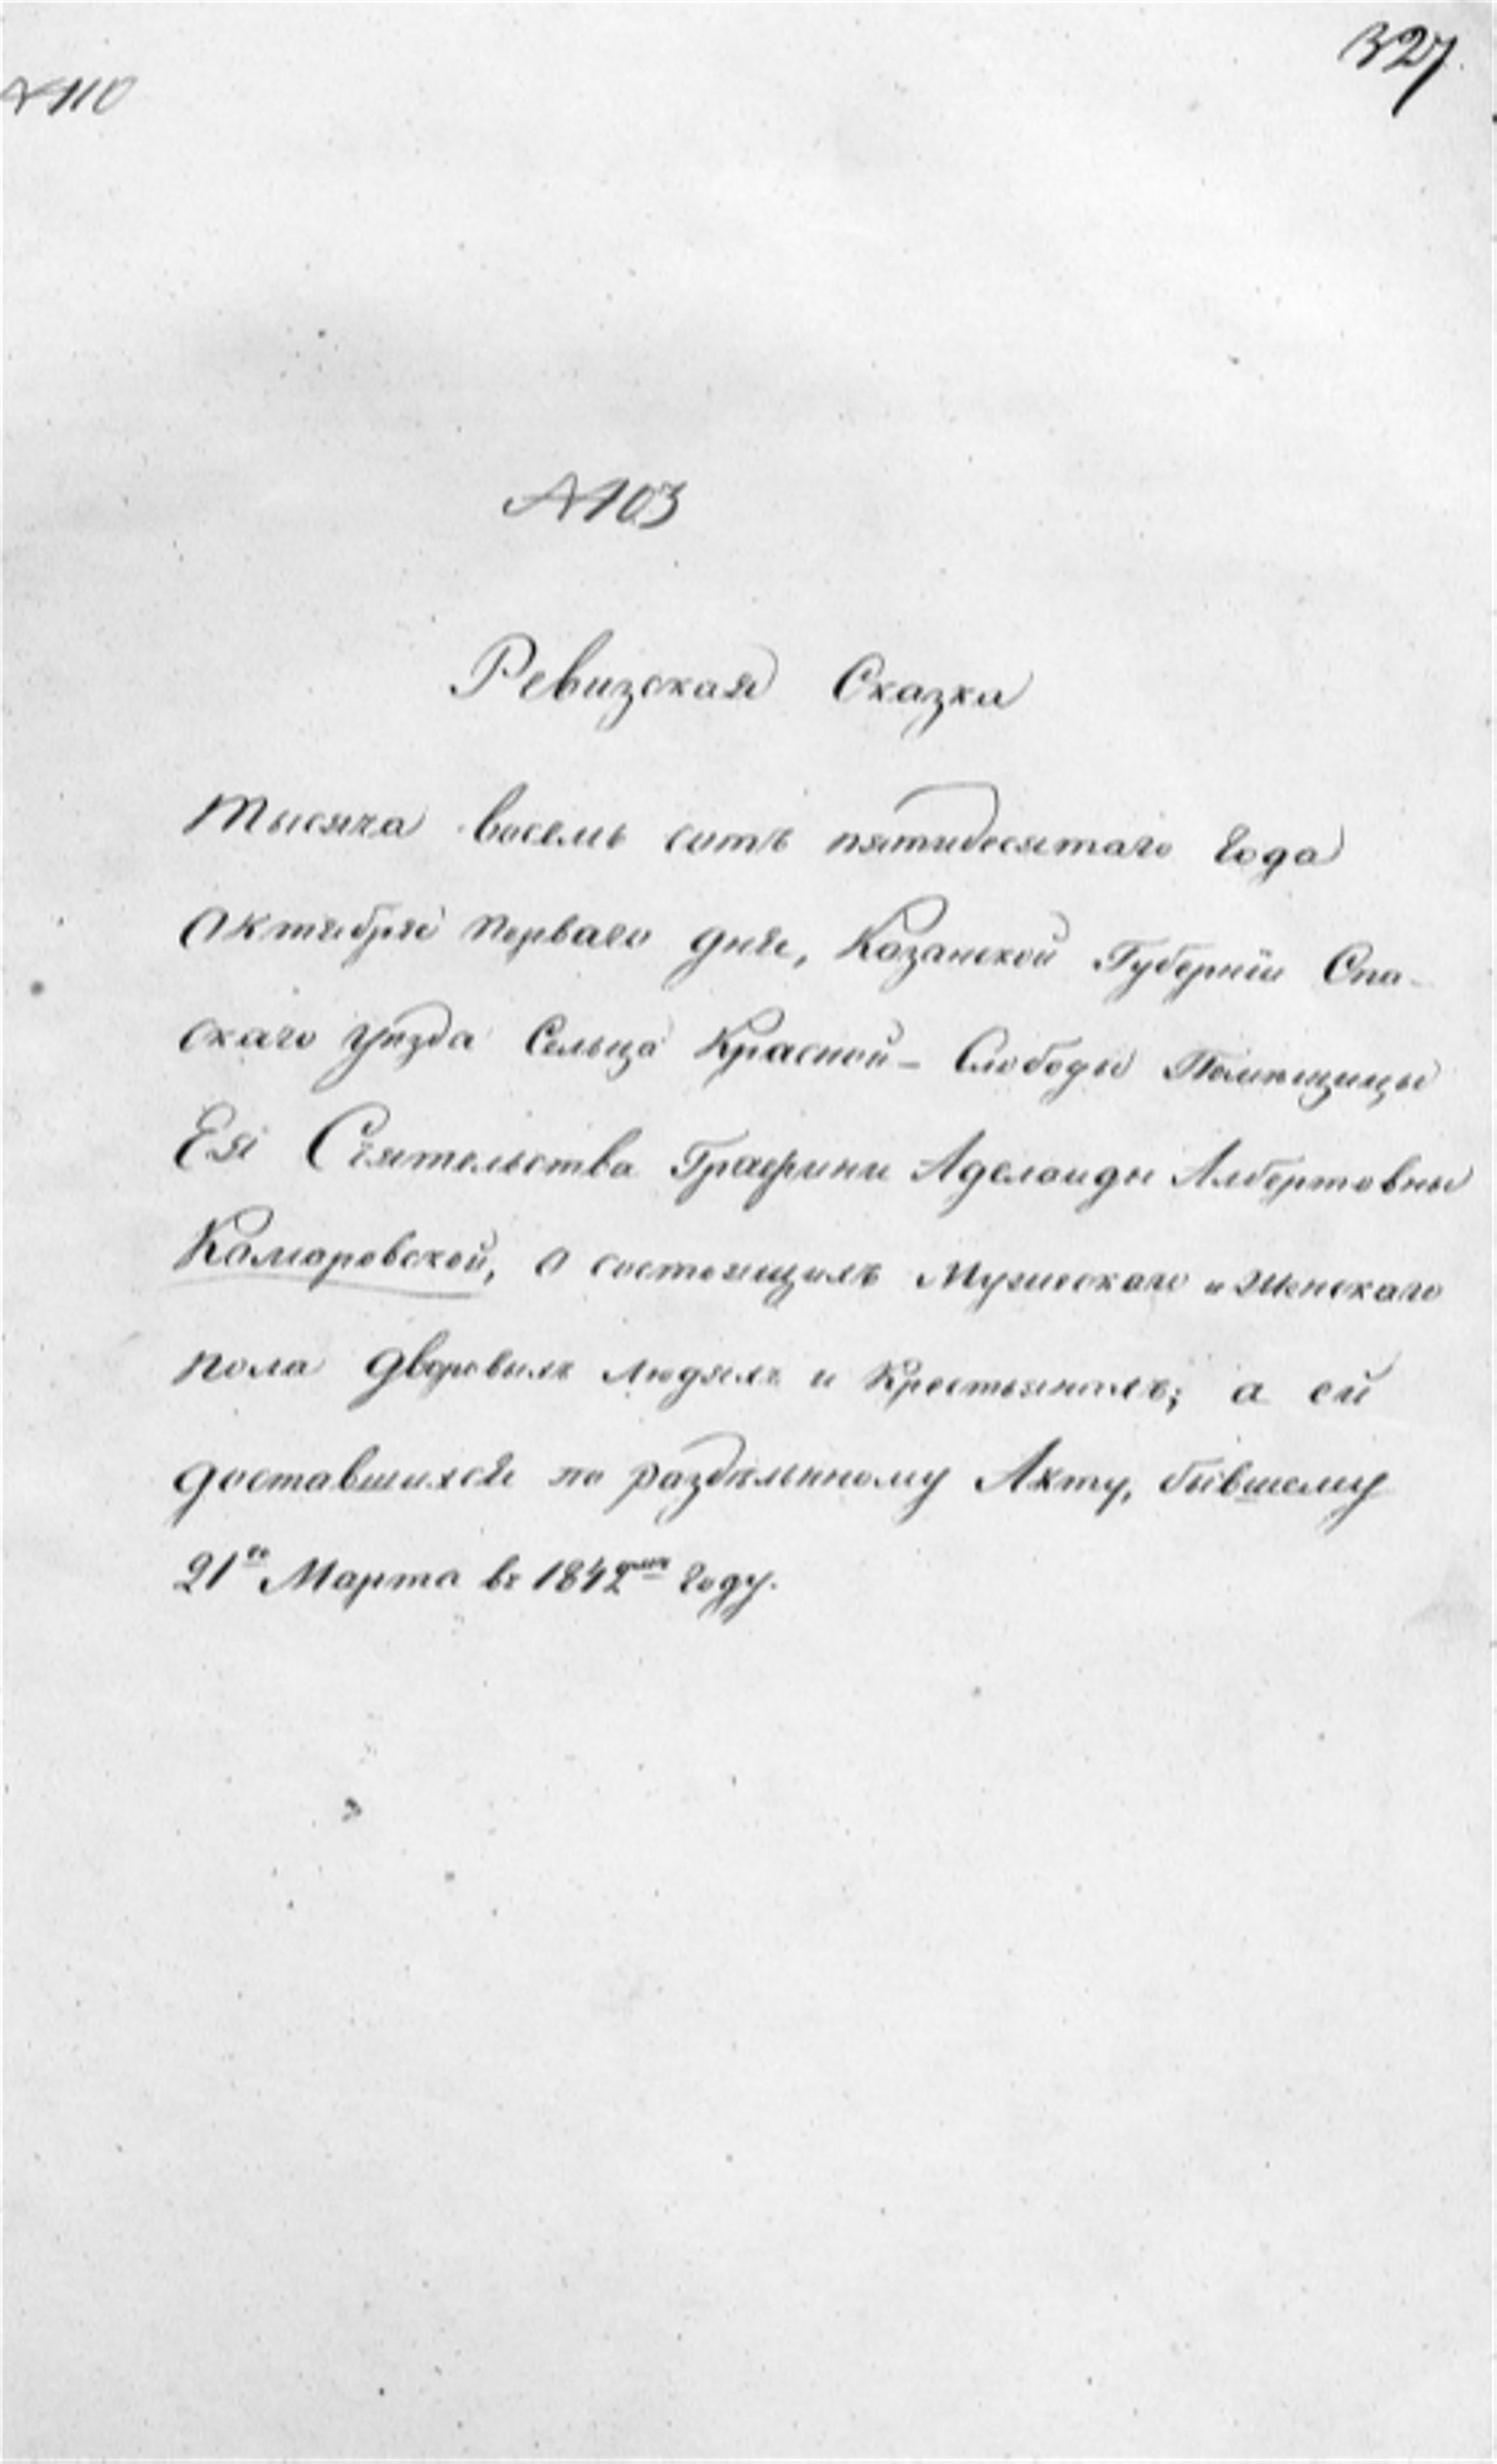 327.
№110
№103
Ревизская Сказка
Тысяча восемь сотъ пятидесятаго года
Октября перваго дня, Казанской Губернїи Спа-
скаго уѣзда Сельца Красной-Слободы Помѣщицы
Ея Сіятельства Графини Аделаиды Албертовны
Камаровской, о состоящихъ Мужескаго и Женскаго
пола дворовыхъ людяхъ и Крестьянахъ; а ей
доставшихся по раздѣльному Акту, бывшему
21го Марта въ 1842мъ году.